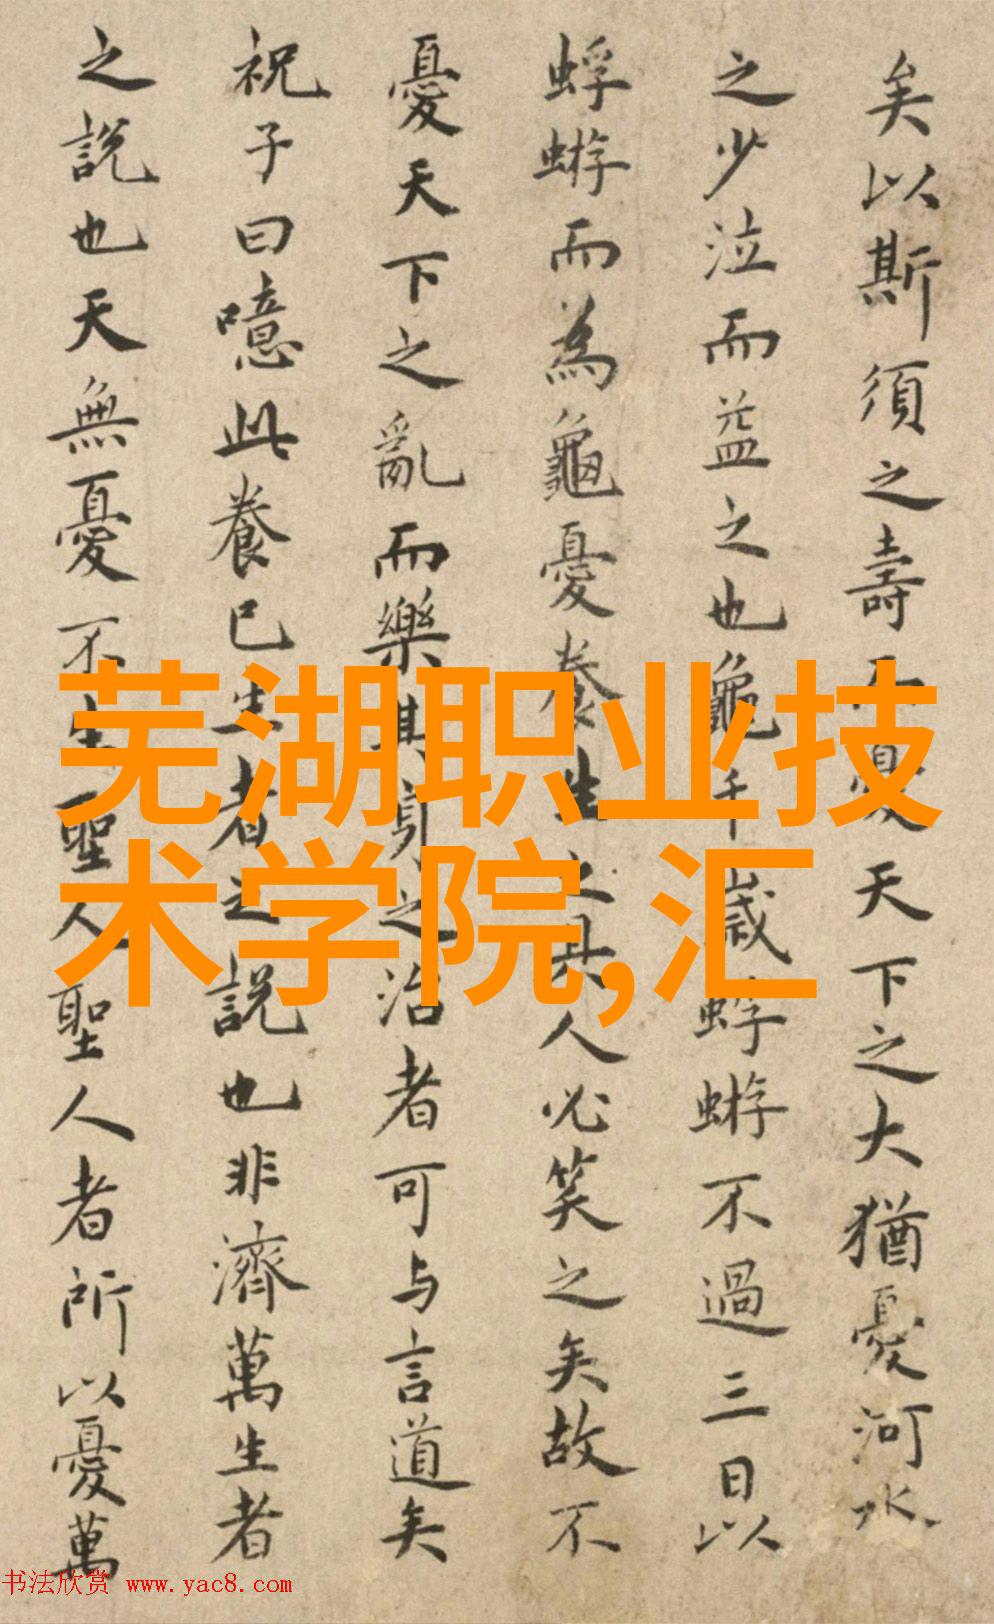 矣以斯須之壽而憂天下之大猶憂河水
之少泣而益之也龜千歲蜉蝣不過三日以
蜉蝣而為龜憂養生之具人必笑之矣故不
憂天下之亂而樂其身之治者可与言道矣
祝子曰噫此養已生者之説也非濟萬生者
之説也天無憂不生聖人聖人者所以憂萬
芜湖职业技
术学院,汇
书法欣赏 www.yac8.com